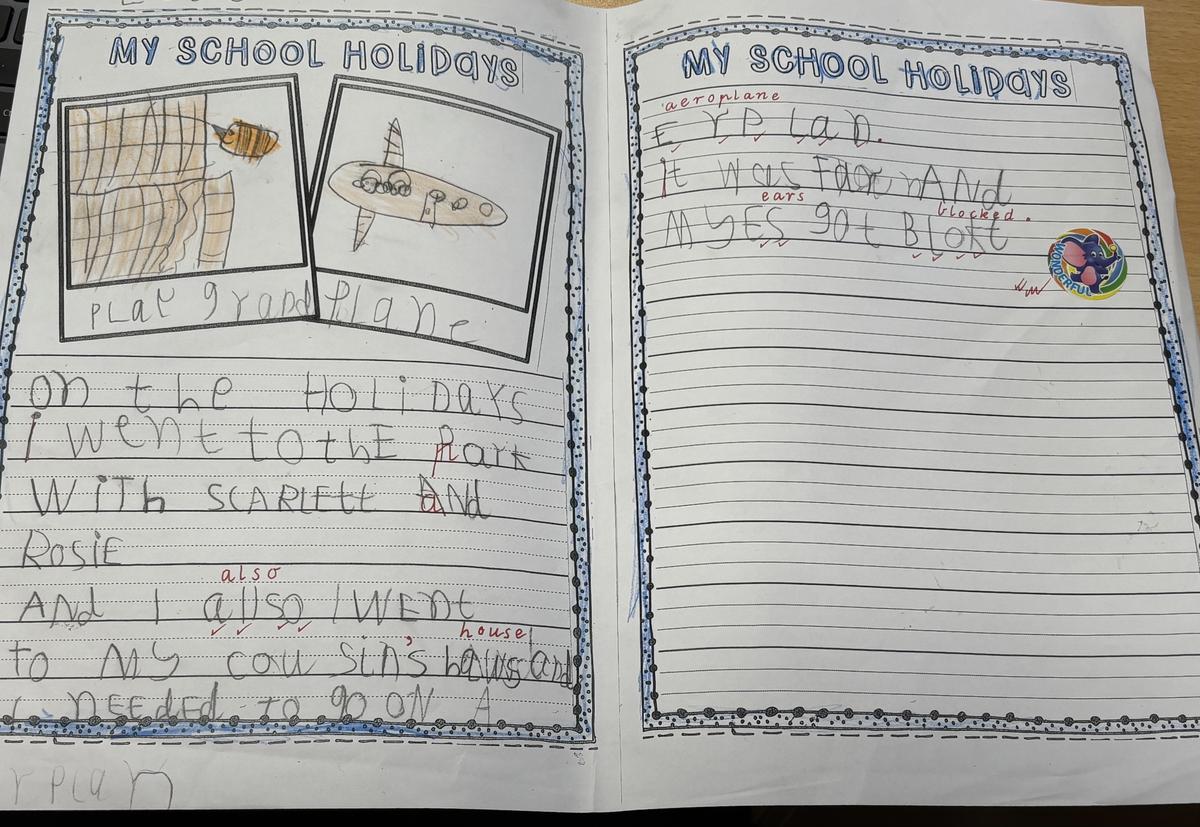 MY SCHOOL HOLIDAYS
PLaY grand
Plane
on the HOLiDAYS
i went to thE Park
WiTh SCARLEtt AND
ROSiE
also
AND I allso I WENt
house
to My couSin's hawsand
I nEEdEd to go ON A
r PLan
MY SCHOOL HOLIDAYS
aeroplane
E rPLan.
It was Far AND
ears
blocked.
My ES got BLokt
WONDERFUL